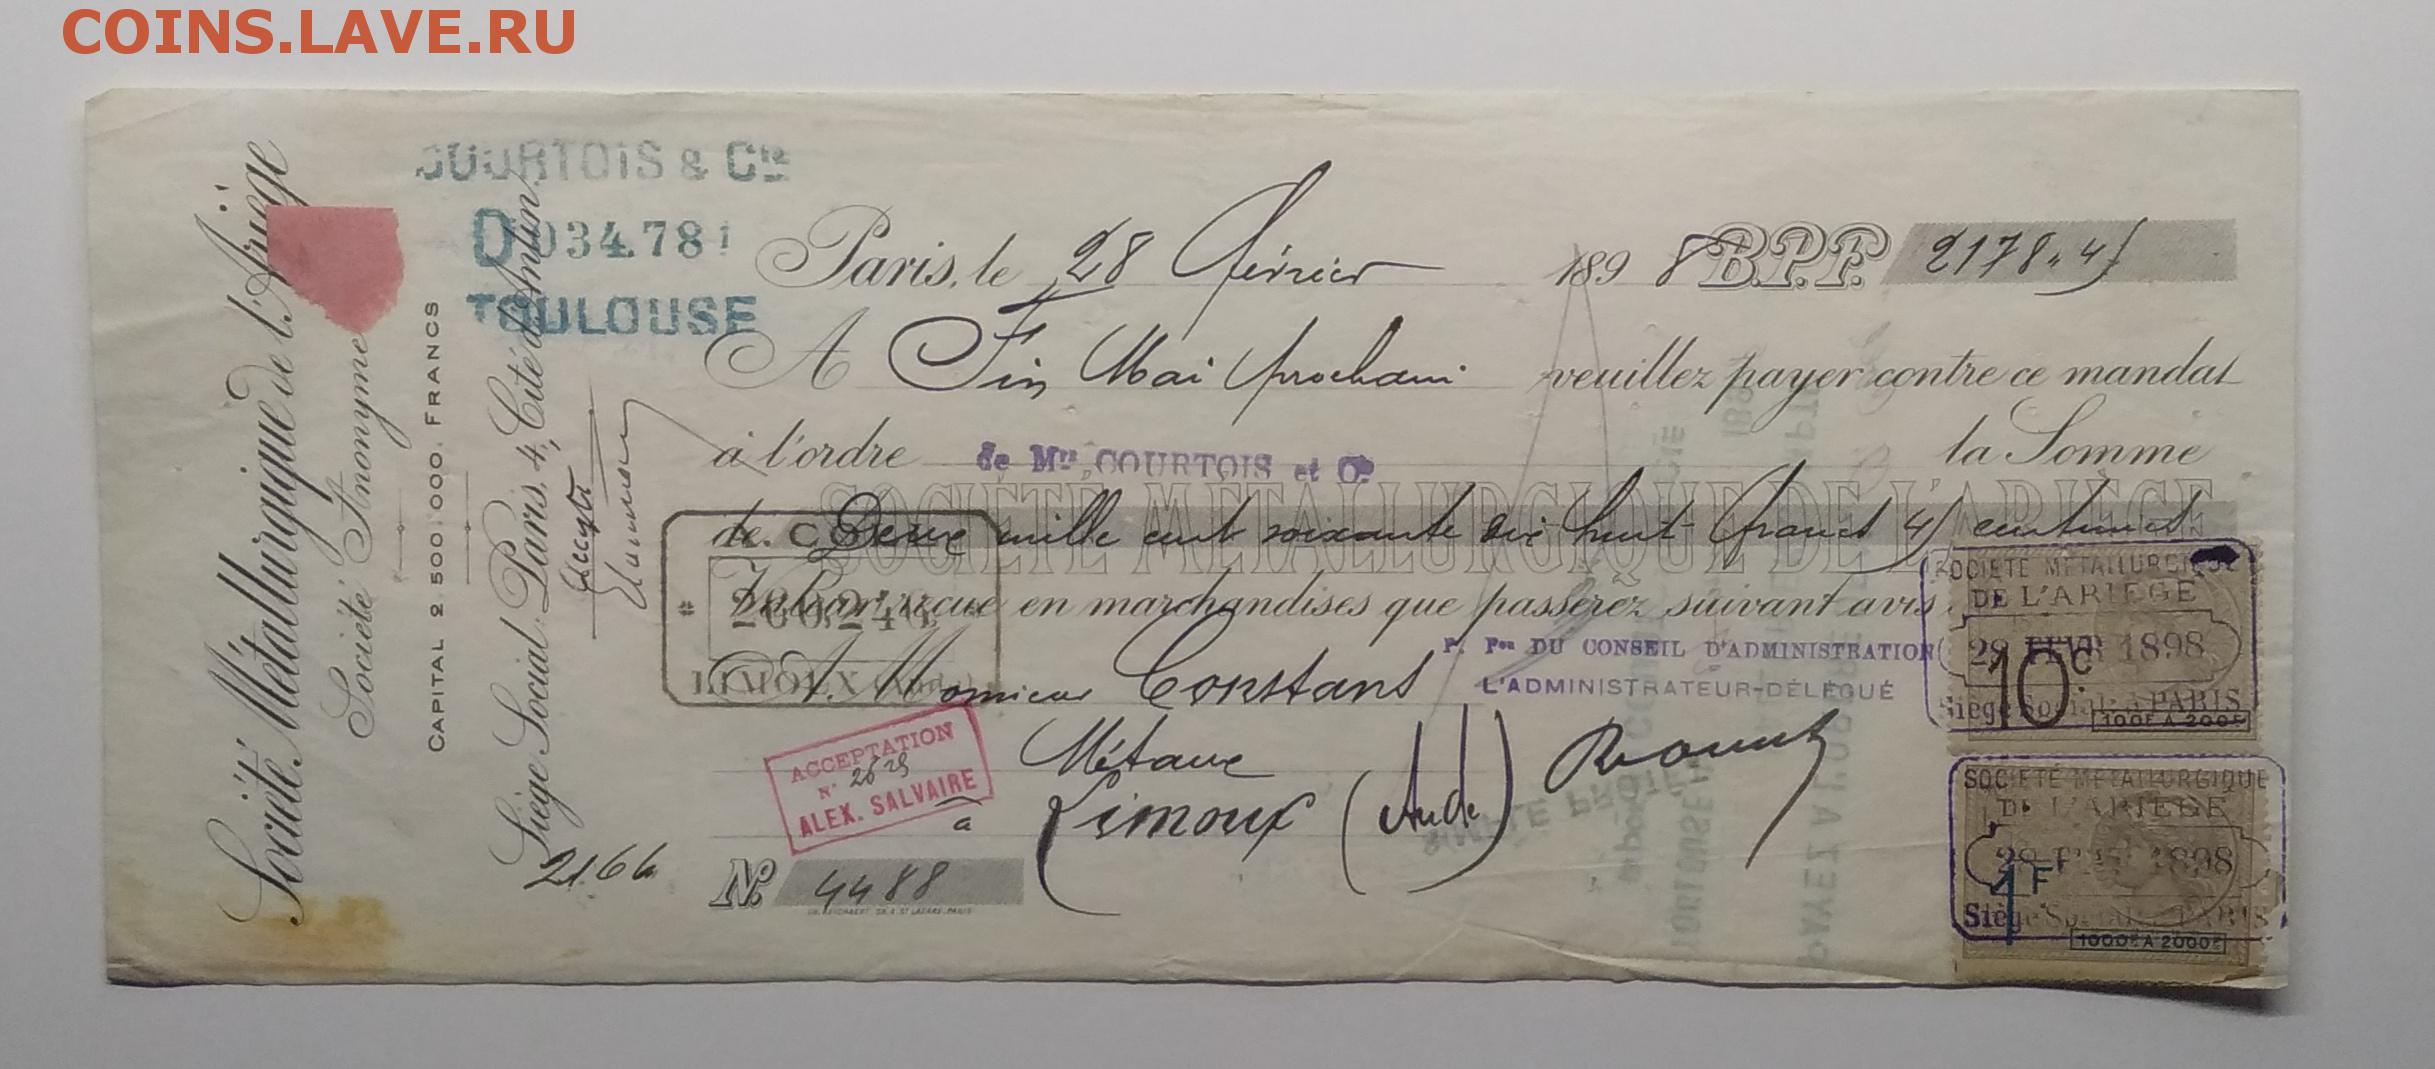 COINS.LAVE.RU
Société Métallurgique de l'Ariège
Société Anonyme
CAPITAL 2.500.000. FRANCS
Siège Social: Paris, 4, Cité d'Antin.
COURTOIS & Cie
D 034.781
TOULOUSE
Paris, le 28 février 1898 B.P.F. 2178.45
A Fin Mai prochain veuillez payer contre ce mandat
à l'ordre de Mrs COURTOIS et Cie la Somme
SOCIÉTÉ MÉTALLURGIQUE DE L'ARIÈGE
de Deux mille cent soixante dix huit francs 45 centimes
Valeur reçue en marchandises que passerez suivant avis
LIMOUX (Aude)
P. Pon DU CONSEIL D'ADMINISTRATION
L'ADMINISTRATEUR-DÉLÉGUÉ
A Monsieur Constans
Métaux
à Limoux (Aude)
ACCEPTATION
N°
ALEX. SALVAIRE
2166
N° 4488
SOCIÉTÉ MÉTALLURGIQUE
DE L'ARIÈGE
28 FEVR 1898
10c
Siège Social à PARIS
100F A 200F
SOCIÉTÉ MÉTALLURGIQUE
DE L'ARIÈGE
28 FEVR 1898
1F
Siège Social à PARIS
1000F A 2000F